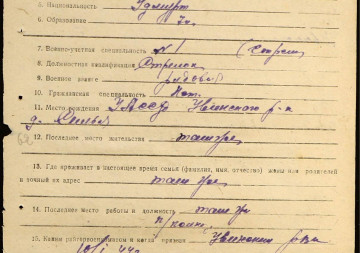 5. Национальность Удмурт
6. Образование 7 к.
7. Военно-учетная специальность №1 (Стрел
8. Должностная квалификация Стрелок
9. Военное звание рядовой
10. Гражданская специальность Нет.
11. Место рождения УАССР Увинского р-на
д.
12. Последнее место жительства там же
13. Где проживает в настоящее время семья (фамилия, имя, отчество) жены или родителей
и точный их адрес там же
14. Последнее место работы и должность там же
15. Каким райвоенкоматом и когда призван Увинским рвк